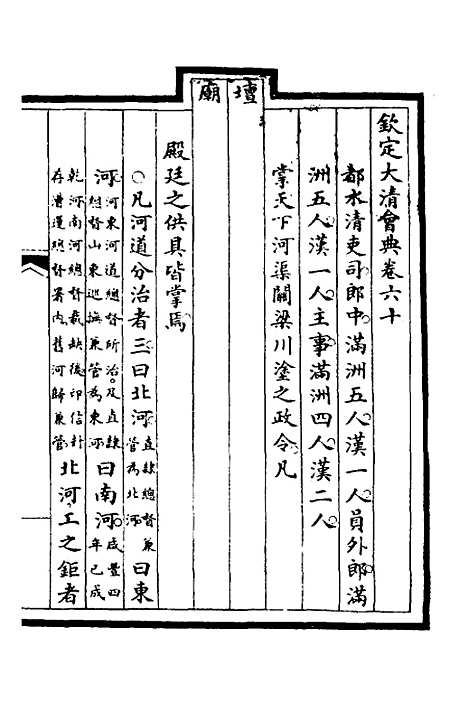 欽定大清會典卷六十
都水清吏司郎中滿洲五人漢一人員外郎滿
洲五人漢一人主事滿洲四人漢二人
掌天下河渠關梁川塗之政令凡
壇
廟
殿廷之供具皆掌焉
○凡河道分治者三曰北河直隸總督兼
管為北河曰東
河河東河道總督所治及直隸
總督山東巡撫兼管為東河曰南河咸豐四
年已成
乾河南河總督裁缺後印信封
存漕運總督署內舊河歸兼管北河工之鉅者